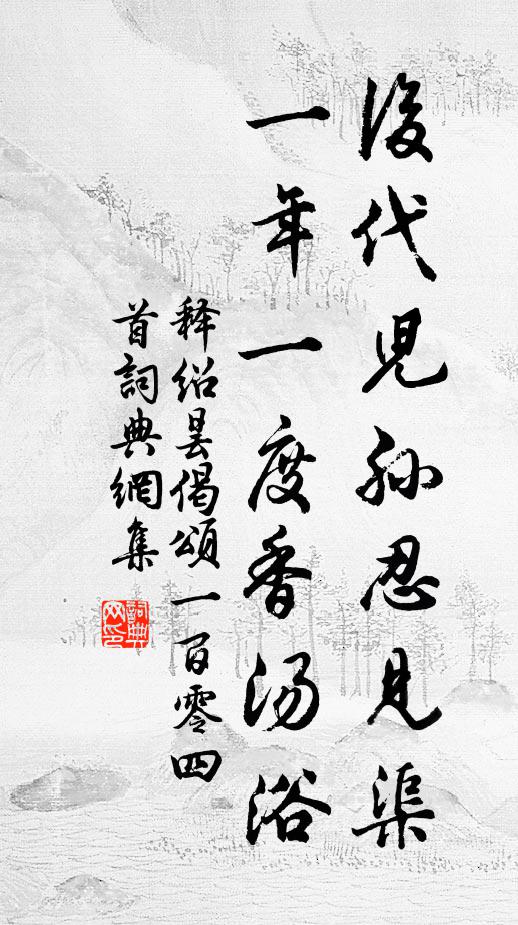 後代児孫忍見渠
一年一度香湯浴
釋紹曇偈頌一百零四
首詞典網集
詞典網印